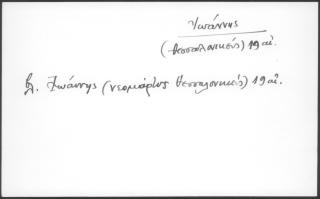 Ἰωάννης
(Θεσσαλονικεύς) 19 αἰ.
βλ. Ἰωάννης (νεομάρτυς Θεσσαλονικεύς) 19 αἰ.